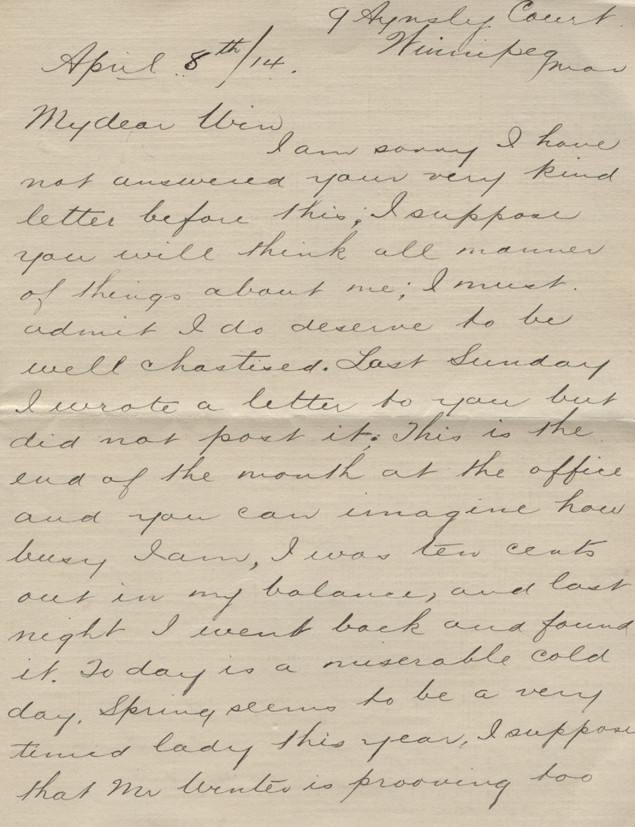 9 Aynsley Court
Winnipeg
Man
April 8th/14.
My dear Win
I am sorry I have
not answered your very kind
letter before this; I suppose
you will think all manner
of things about me; I must
admit I do deserve to be
well chastised. Last Sunday
I wrote a letter to you but
did not post it. This is the
end of the month at the office
and you can imagine how
busy I am, I was ten cents
out in my balance, and last
night I went back and found
it. To day is a miserable cold
day. Spring seems to be a very
timid lady this year, I suppose
that Mr Winter is prooving too